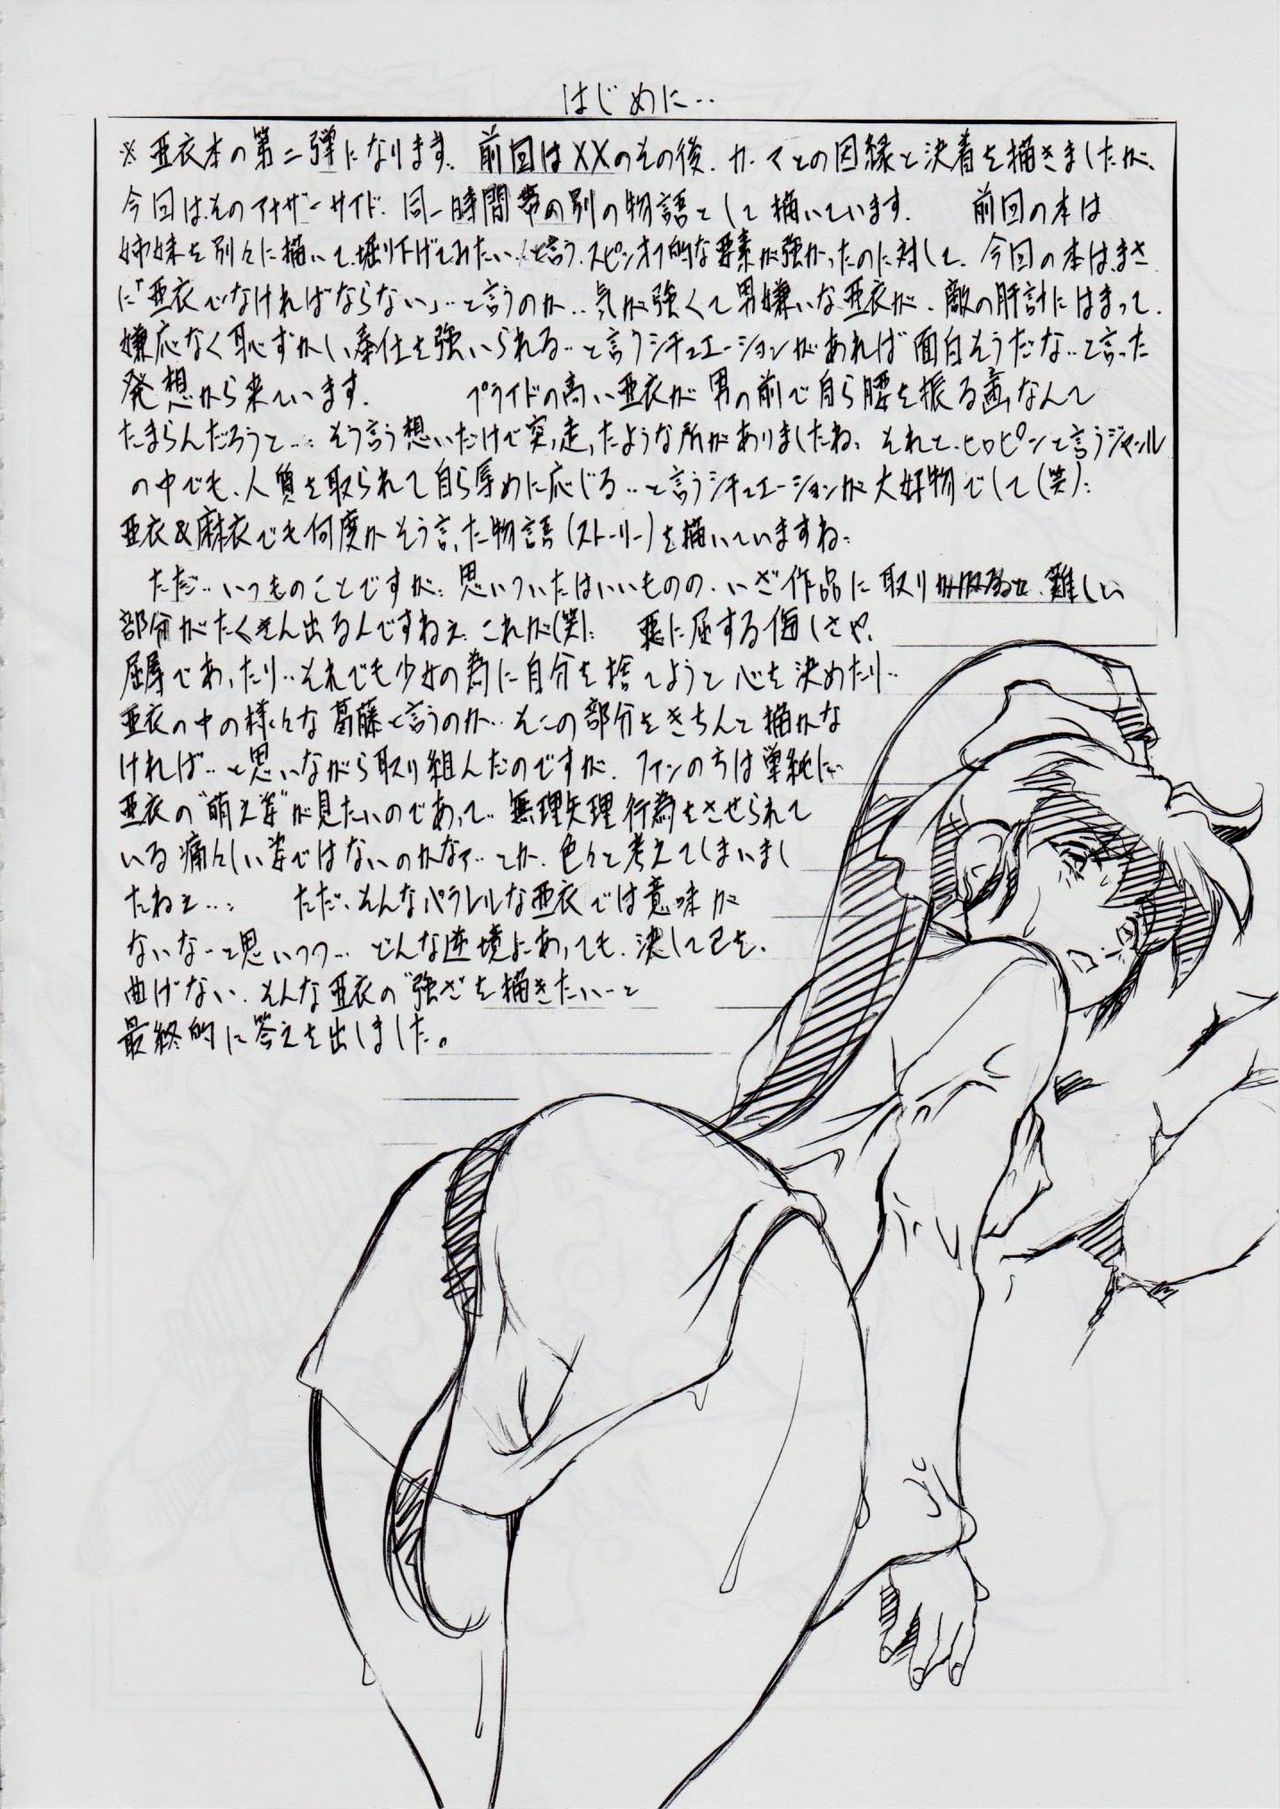 はじめに‥
※ 亜衣本の第二弾になります。前回はXXのその後、カーマとの因縁と決着を描きましたが、
今回はそのアナザーサイド、同一時間帯の別の物語として描いています。 前回の本は
姉妹を別々に描いて、掘り下げてみたい‥と言う、スピンオフ的な要素が強かったのに対して、今回の本は、まさ
に「亜衣でなければならない」‥と言うのか‥気が強くて男嫌いな亜衣が、敵の肝計にはまって、
嫌応なく恥ずかしい奉仕を強いられる‥と言うシチュエーションがあれば面白そうだな‥と言った
発想から来ています。 プライドの高い亜衣が男の前で自ら腰を振る画なんて
たまらんだろうと‥、そう言う想いだけで突っ走ったような所がありましたね。それと、ヒロピンと言うジャンル
の中でも、人質を取られて自ら辱めに応じる‥と言うシチュエーションが大好物でして(笑)、
亜衣&麻衣でも何度かそう言った物語(ストーリー)を描いていますね。
ただ‥いつものことですが、思いついたはいいものの、いざ作品に取り掛かると、難しい
部分がたくさん出るんですねぇ、これが(笑)、 悪に屈する悔しさや、
屈辱であったり‥それでも少女の為に自分を捨てようと心を決めたり‥
亜衣の中の様々な葛藤と言うのか‥そこの部分をきちんと描かな
ければ‥と思いながら取り組んだのですが、ファンの方は単純に
亜衣の“萌え姿”が見たいのであって‥無理矢理行為をさせられて
いる痛々しい姿ではないのかなァ‥とか、色々と考えてしまいまし
たねぇ‥、 ただ、そんなパラレルな亜衣では意味が
ないな‥と思いつつ‥どんな逆境にあっても、決して己を、
曲げない、そんな亜衣の“強さ”を描きたい‥と
最終的に答えを出しました。